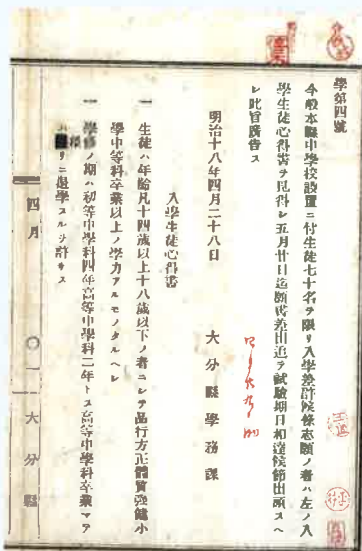 學第四號
今般本縣中學校設置ニ付生徒七十名ヲ限リ入學差許候條志願ノ者ハ左ノ入
學生徒心得書ヲ見得シ五月廿日迄願書差出追テ試驗期日相達候節出頭スヘ
シ此旨廣告ス
明治十八年四月二十八日
大分縣學務課
入學生徒心得書
一 生徒ハ年齡凡十四歲以上十八歲以下ノ者ニシテ品行方正體質强健小
學中等科卒業以上ノ學力アルモノタルヘシ
一 學修ノ期ハ初等中學科四年高等中學科二年トス高等中學科卒業マテ
リニ退學スルヲ許サス
四月
〇一
大分縣